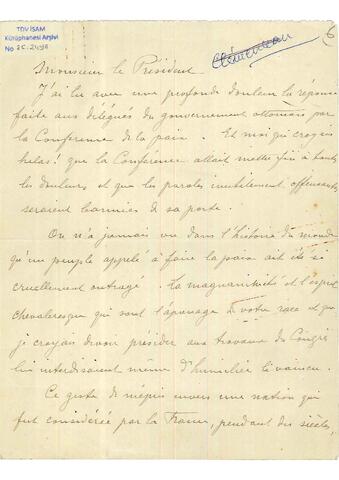 TDV İSAM
Kütüphanesi Arşivi
No
Clémenceau
6
Monsieur le Président
J'ai lu avec une profonde douleur la réponse
faite aux délégués du gouvernement ottoman par
la Conférence de la paix. Et moi qui croyais
helas! que la Conférence allait mettre fin à toutes
les douleurs et que les paroles inutilement offensantes
seraient bannies de sa porte.
On n'a jamais vu dans l'histoire du monde
qu'un peuple appelé à faire la paix ait été si
cruellement outragé. La magnanimité et l'esprit
chevaleresque qui sont l'apanage de votre race et que
je croyais devoir présider aux travaux du Congrès
lui interdisaient même d'humilier le vaincu.
Ce geste de mépris envers une nation qui
fut considérée par la France, pendant des siècles,